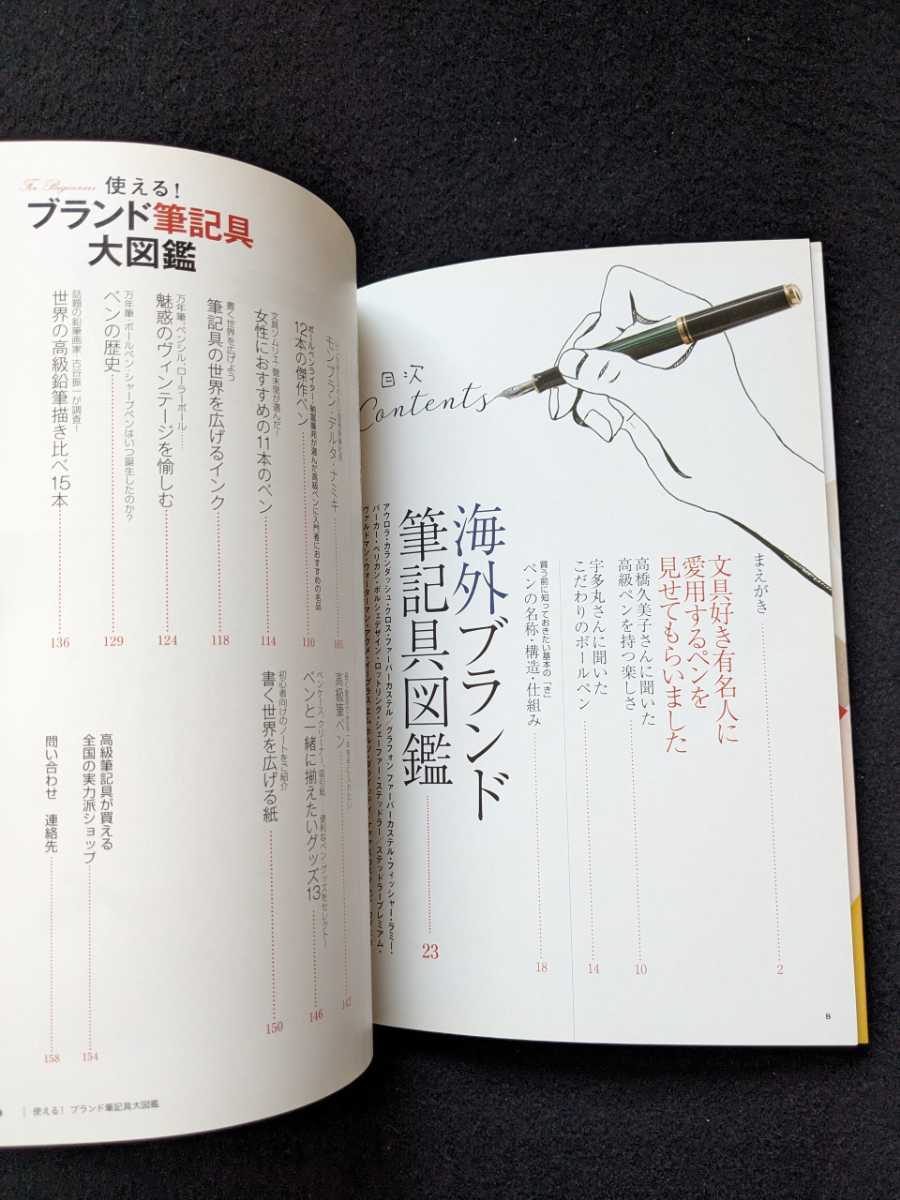 目次
Contents
まえがき
2
文具好き有名人に
愛用するペンを
見せてもらいました
高橋久美子さんに聞いた
高級ペンを持つ楽しさ
10
宇多丸さんに聞いた
こだわりのボールペン
14
買う前に知っておきたい基本の「き」
ペンの名称・構造・仕組み
18
海外ブランド
筆記具図鑑
23
アウロラ・カランダッシュ・クロス・ファーバーカステル/グラフォン ファーバーカステル・フィッシャー・ラミー・
パーカー・ペリカン・ポルシェデザイン・ロットリング・シェーファー・ステッドラー/ステッドラープレミアム・
ヴァルドマン・ウォーターマン・アクメ・
8
For Beginners 使える!
ブランド筆記具
大図鑑
モンブラン・デルタ・ナミキ
12本の傑作ペン
110
女性におすすめの11本のペン
114
書く世界を広げよう
筆記具の世界を広げるインク
118
万年筆、ペンシル、ローラーボール……
魅惑のヴィンテージを愉しむ
124
万年筆、ボールペン、シャープペンはいつ誕生したのか?
ペンの歴史
129
話題の鉛筆画家・古谷振一が調査!
世界の高級鉛筆描き比べ15本
136
高級筆ペン
142
ペンと一緒に揃えたいグッズ13
146
初心者向けのノートをご紹介
書く世界を広げる紙
150
高級筆記具が買える
全国の実力派ショップ
154
問い合わせ 連絡先
158
使える! ブランド筆記具大図鑑